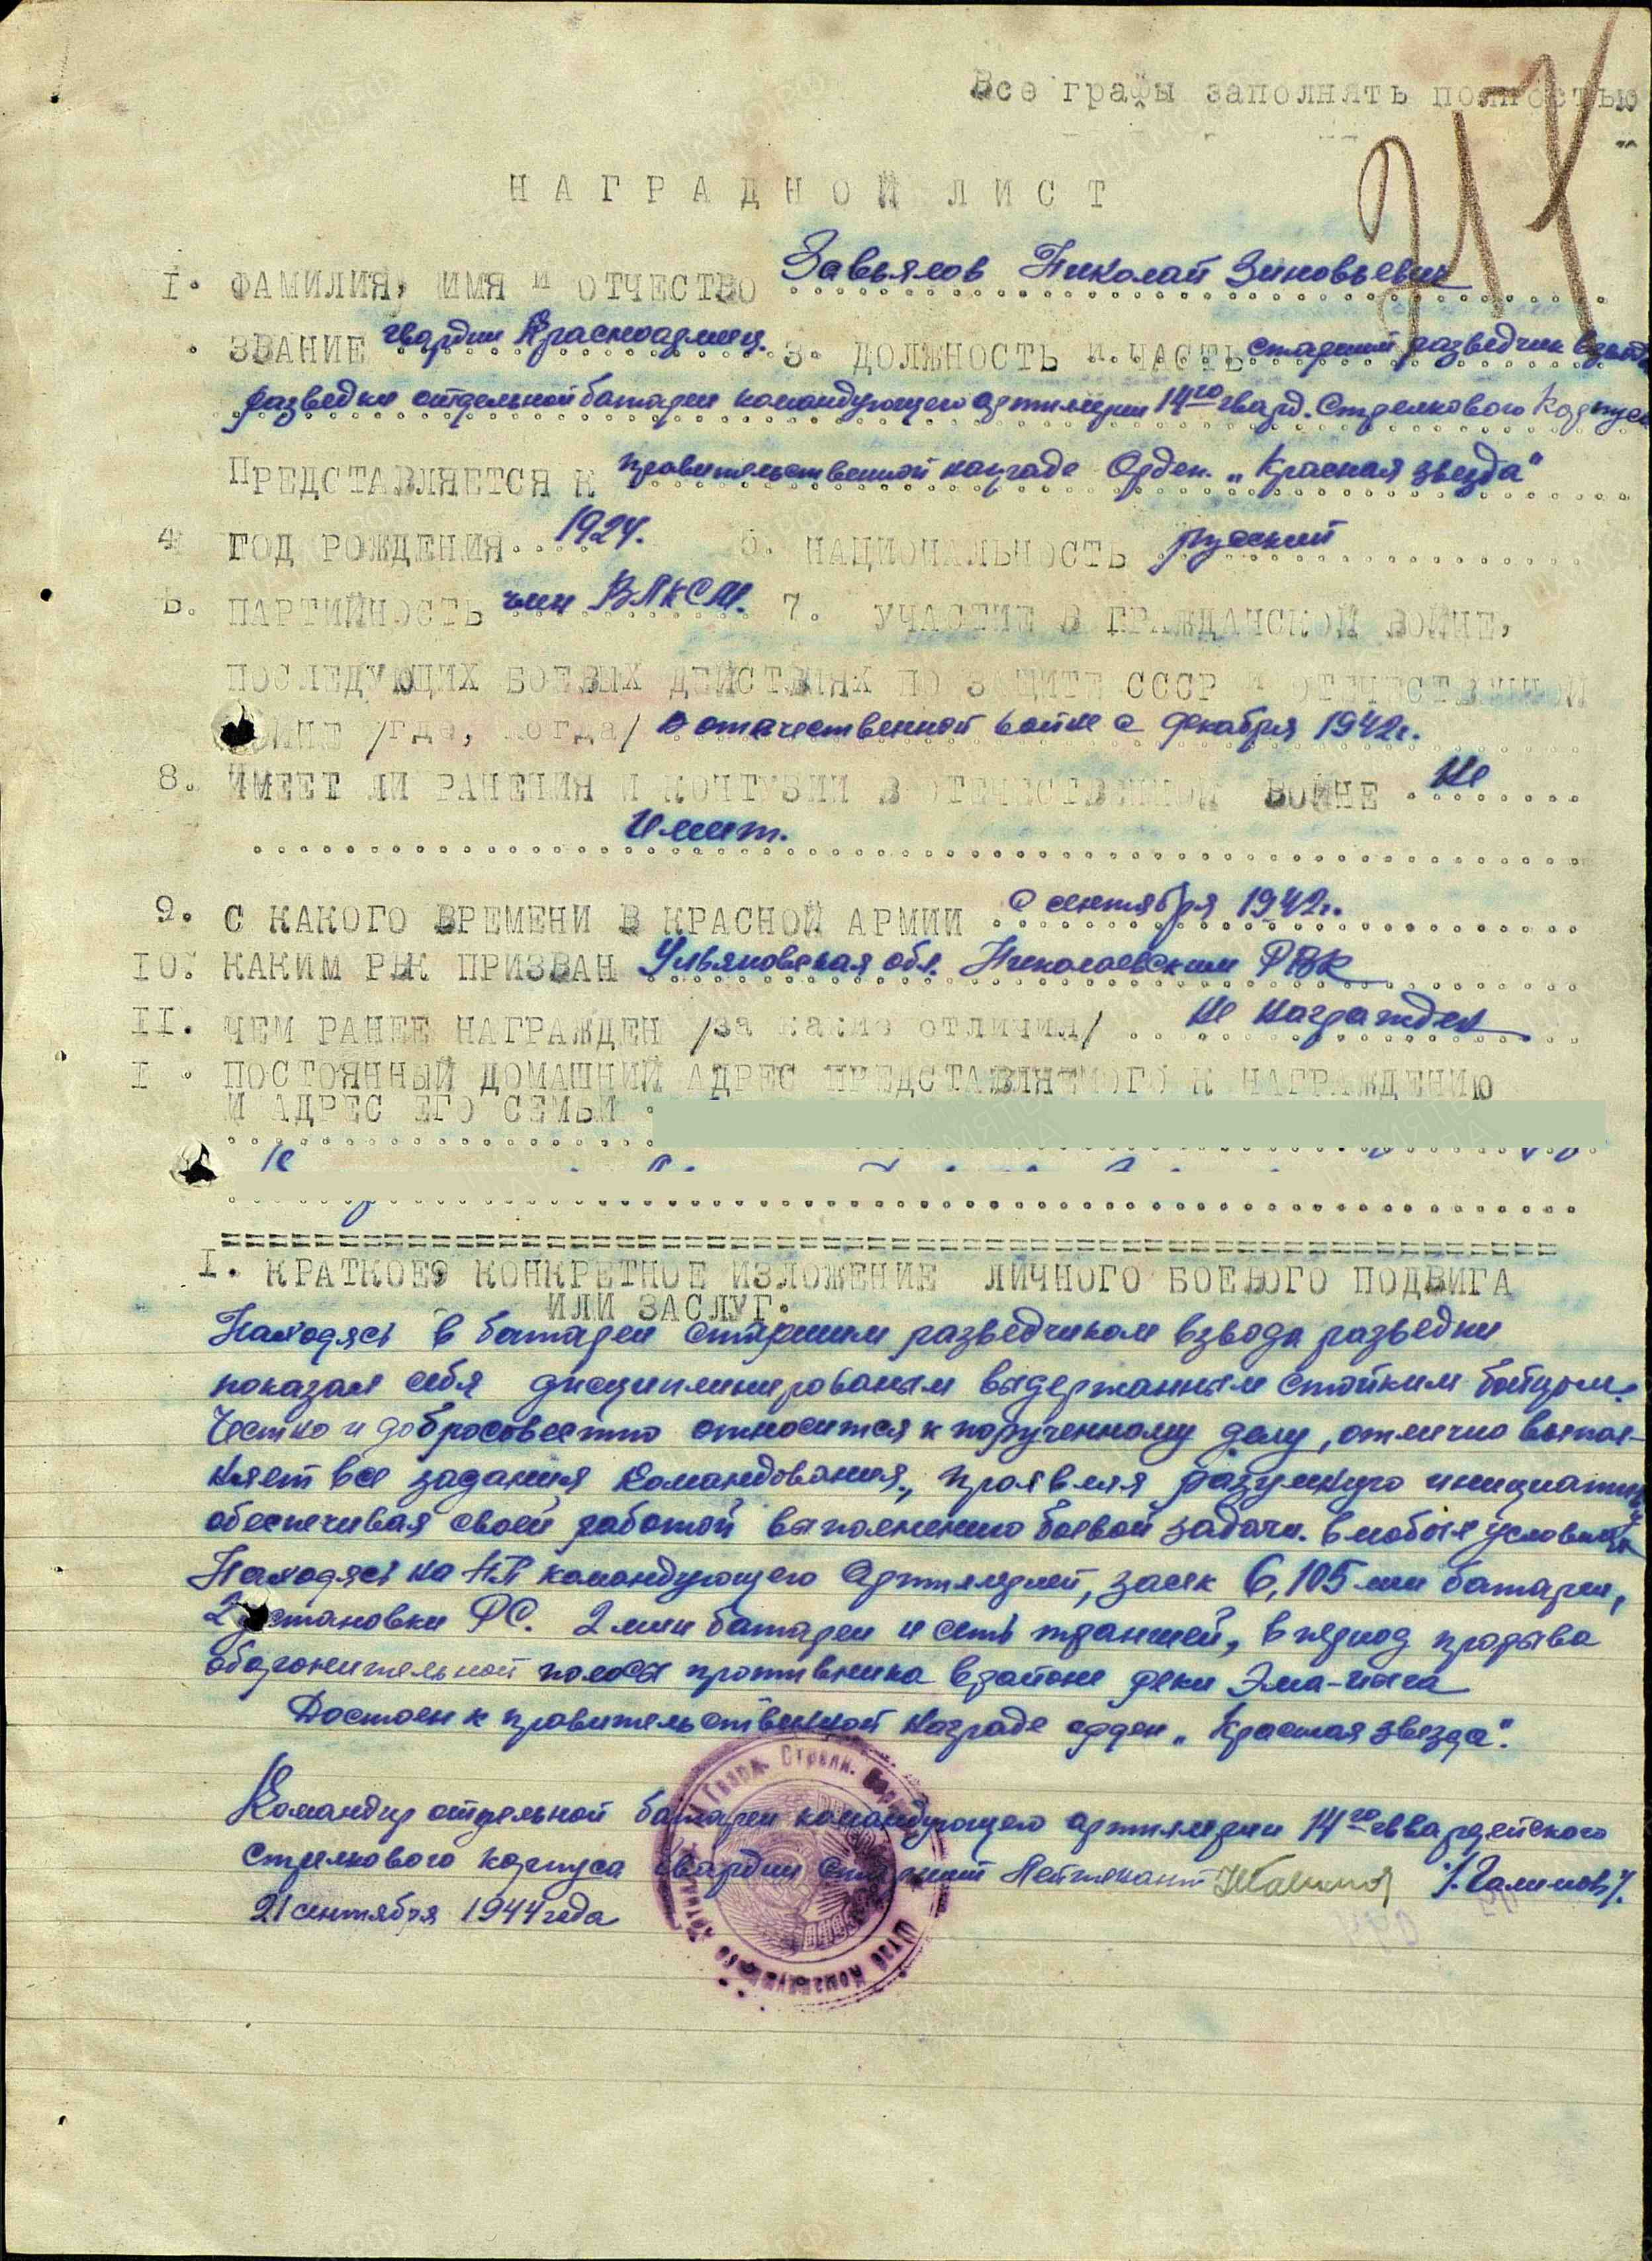 Все графы заполнять полностью
НАГРАДНОЙ ЛИСТ
I. ФАМИЛИЯ, ИМЯ и ОТЧЕСТВО Завьялов Николай Зиновьевич
. ЗВАНИЕ гвардии Красноармеец. 3. ДОЛЖНОСТЬ и ЧАСТЬ старший разведчик взвода
разведки отдельной батареи командующего артилерии 14го гвард. Стрелкового Корпуса
ПРЕДСТАВЛЯЕТСЯ К правительственной награде Орден. „Красная звезда"
4 ГОД РОЖДЕНИЯ 1924. 5. НАЦИОНАЛЬНОСТЬ русский
6. ПАРТИЙНОСТЬ член ВЛКСМ. 7. УЧАСТИЕ В ГРАЖДАНСКОЙ ВОЙНЕ,
ПОСЛЕДУЮЩИХ БОЕВЫХ ДЕЙСТВИЯХ ПО ЗАЩИТЕ СССР и ОТЕЧЕСТВЕННОЙ
ВОЙНЕ /где, когда/ в отечественной войне с декабря 1942г.
8. ИМЕЕТ ЛИ РАНЕНИЯ И КОНТУЗИИ В ОТЕЧЕСТВЕННОЙ ВОЙНЕ Не
имеет.
9. С КАКОГО ВРЕМЕНИ В КРАСНОЙ АРМИИ с сентября 1942г.
10. КАКИМ РВК ПРИЗВАН Ульяновская обл. Николаевским РВК
II. ЧЕМ РАНЕЕ НАГРАЖДЕН /за какие отличия/ не награжден
I . ПОСТОЯННЫЙ ДОМАШНИЙ АДРЕС ПРЕДСТАВЛЯЕМОГО К НАГРАЖДЕНИЮ
И АДРЕС ЕГО СЕМЬИ
I. КРАТКОЕ, КОНКРЕТНОЕ ИЗЛОЖЕНИЕ ЛИЧНОГО БОЕВОГО ПОДВИГА
ИЛИ ЗАСЛУГ.
Находясь в батареи старшим разведчиком взвода разведки
показал себя дисциплинированым выдержанным стойким бойцом.
Честно и добросовестно относится к порученному делу, отлично выпол-
няет все задания командования, проявляя разумную инициативу
обеспечивая своей работой выполнению боевой задачи в любых условиях
Находясь на НП командующего Артилерией, засек 6, 105 мм батареи,
2 установки РС. 2 мин батареи и сеть траншей, в период прорыва
оборонительной полосы противника в районе реки Эма-иыга
Достоен к правительственной награде орден „Красная звезда".
Командир отдельной батареи командующего артилерии 14го гвардейского
стрелкового корпуса гвардии старший Лейтенант /Галимов/.
21 сентября 1944 года